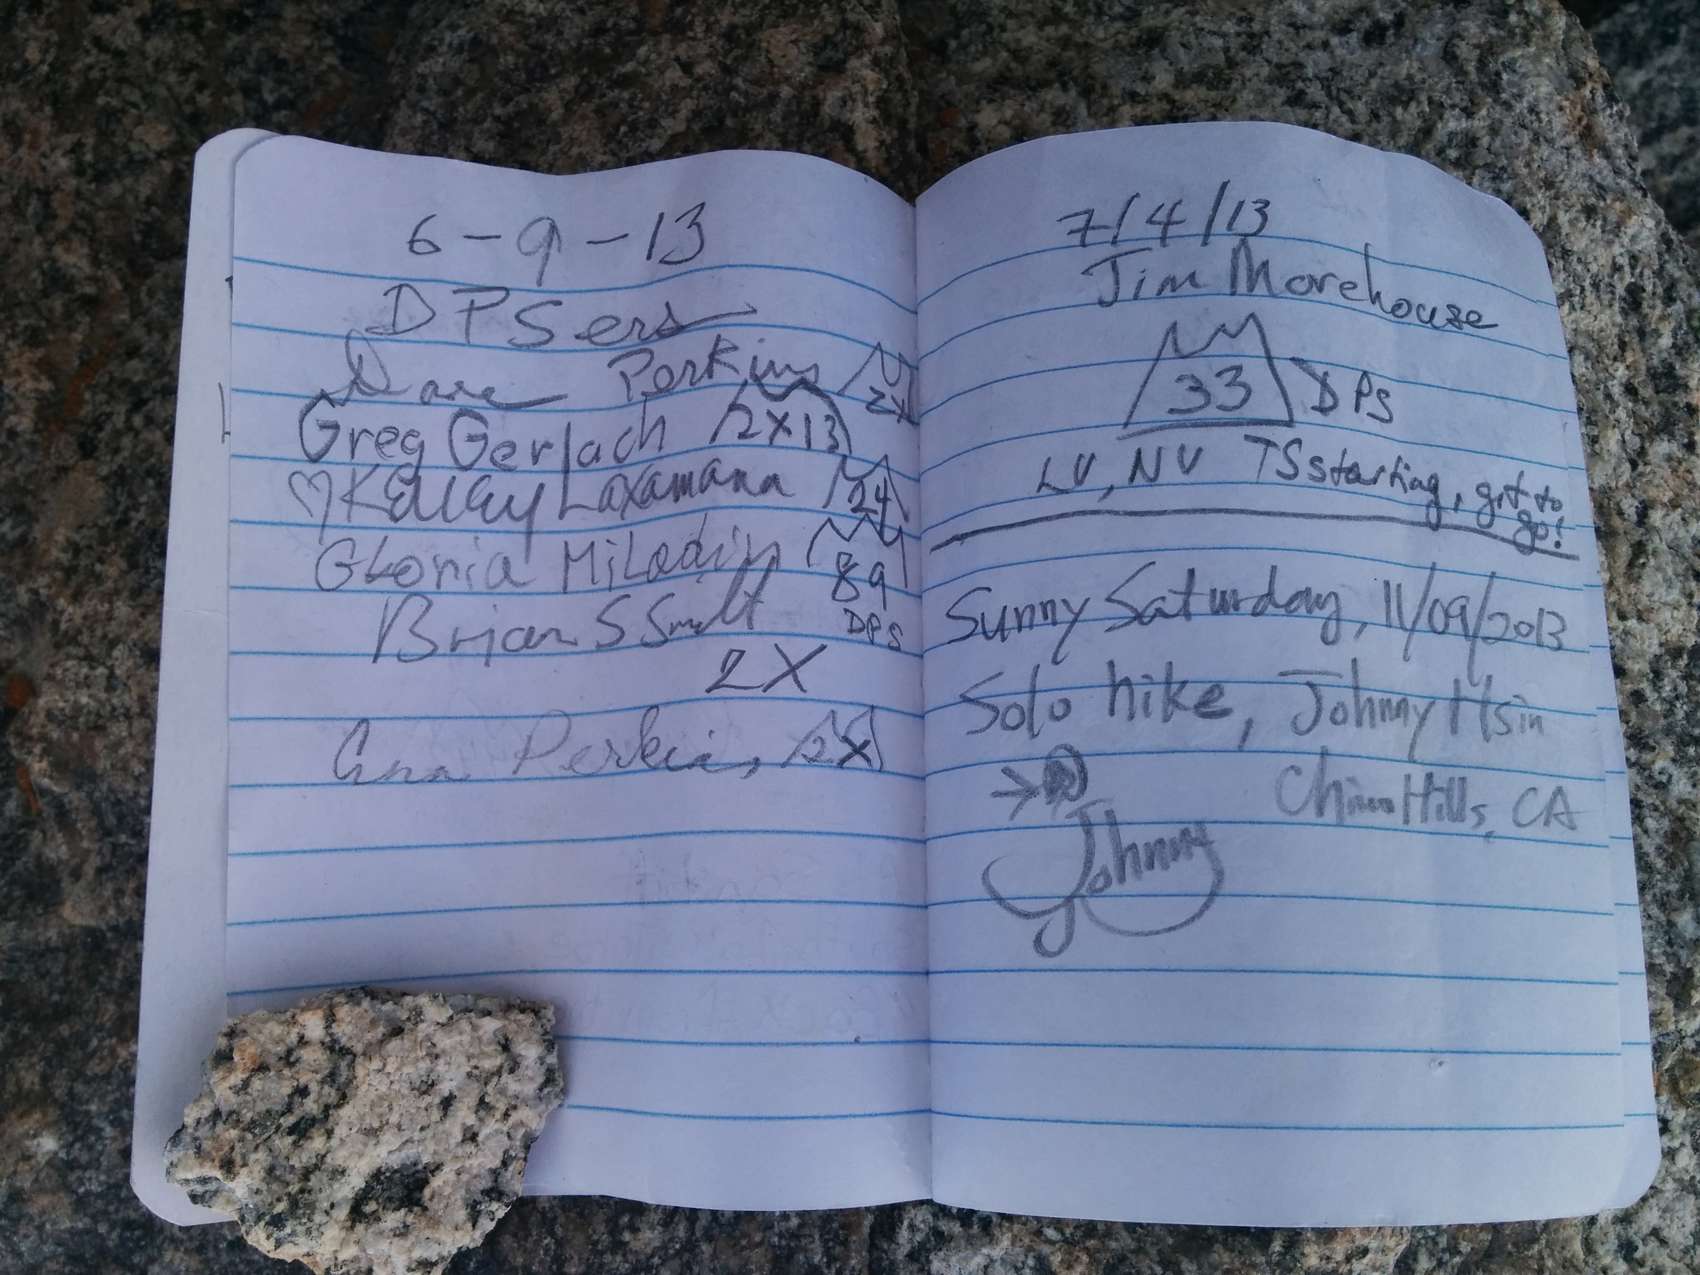 6-9-13
DPSers
Dave Perkins 2X
Greg Gerlach 2X13
♡Kelley Laxamana 24
Gloria Miladin 89
Brian S Smith DPS
2X
Ann Perkins 2X
7/4/13
Jim Morehouse
33 DPS
LV, NV TS starting, got to
go!
Sunny Saturday, 11/09/2013
Solo hike, Johnny Hsin
Chino Hills, CA
Johnny